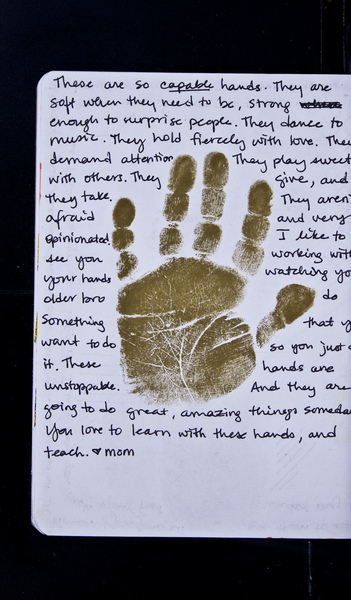 These are so capable hands. They are
soft when they need to be, strong
enough to surprise people. They dance to
music. They hold fiercely with love. They
demand attention They play sweet
with others. They give, and
they take. They aren't
afraid and very
opinionated! I like to
see you working with
your hands watching yo
older bro do
Something that y
want to do so you just
it. These hands are
unstoppable. And they are
going to do great, amazing things someda
You love to learn with these hands, and
teach. ♥ mom